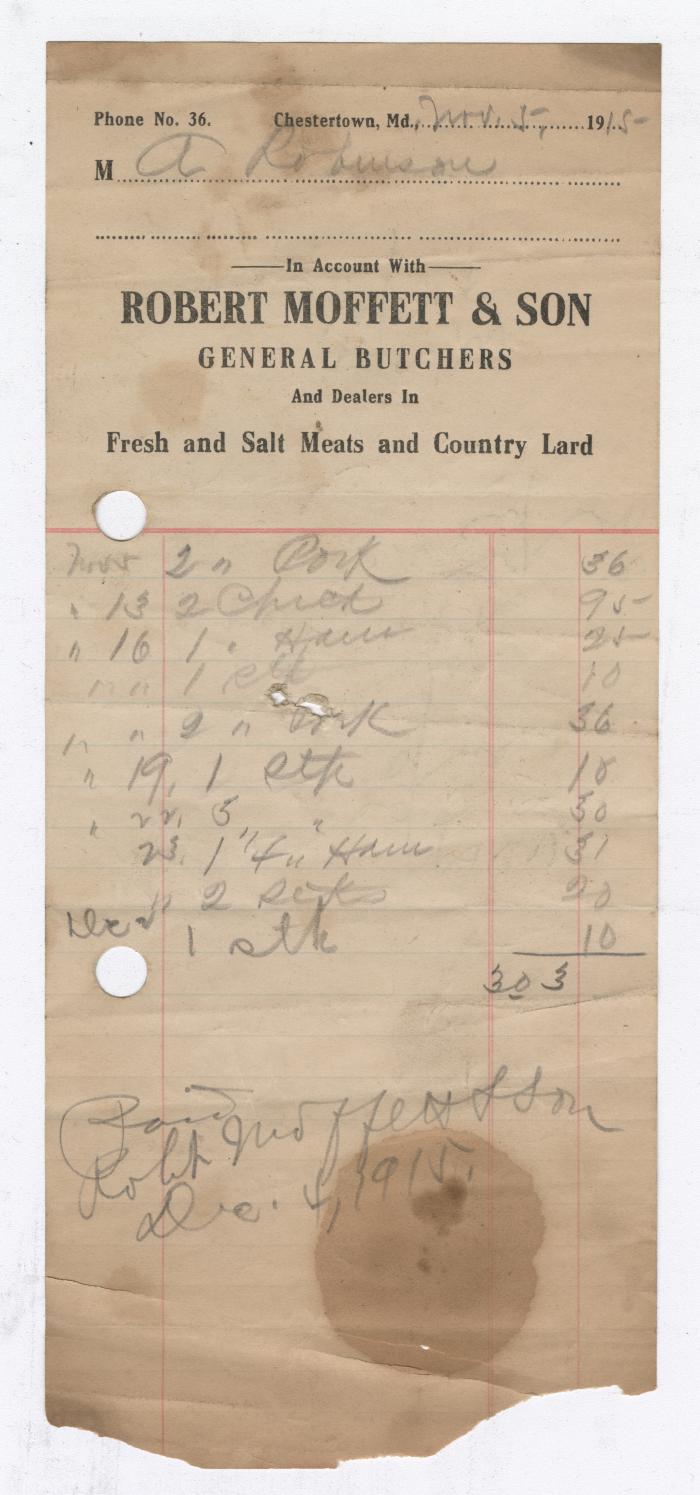 Phone No. 36. Chestertown, Md., Nov. 5, 1915
M A Robinson
In Account With
ROBERT MOFFETT & SON
GENERAL BUTCHERS
And Dealers In
Fresh and Salt Meats and Country Lard
2 " Pork 36
" 13 2 Chick 95
" 16 1 " Ham 25
" " 1 stk 10
" " 2 " Pork 36
" 19, 1 stk 10
" 22, 3 " 30
23. 1 " 4 " Ham 31
" 2 stks 20
Dec 2 1 stk 10
3 0 3
Paid
Robt Moffett & Son
Dec. 4, 1915.